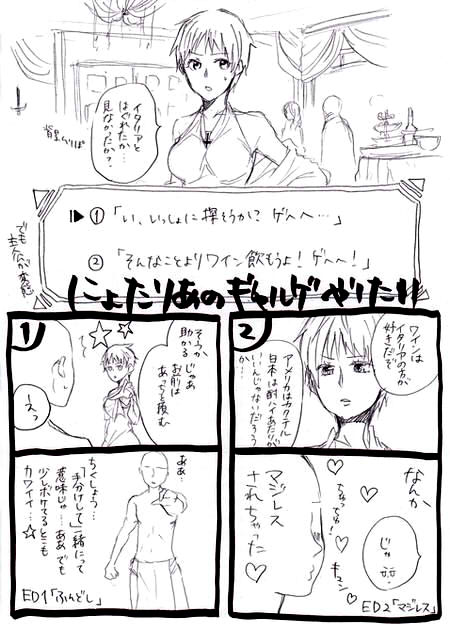 イタリアと
はぐれたか…
見なかったか？
背景てきとう
▶①「い、いっしょに探そうか？ ゲヘヘ…」
②「そんなことよりワイン飲もうよ！ゲヘヘ！」
でも
主人公が変態
にょたりあのギャルゲやりたい!!
1
そうか
助かる
じゃあ
お前は
あっちを頼む
えっ
ああ
ちくしょう…
「手分けして」一緒にって
意味じゃ…ああでも
少しボケてるとこも
カワイイ…☆
ED1「ふんどし」
2
ワインは
イタリアの方が
好きだぞ
アメリカはカクテル
日本は酎ハイあたりが
いいんじゃないだろう
か…
なんか、
マジレス
されちゃった♡
キュン
じゃ
ED2「マジレス」